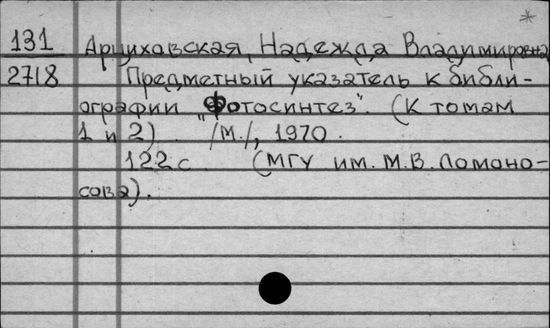 *
131 Арциховская, Надежда Владимировна
2718 Предметный указатель к библи-
ографии "Фотосинтез". (К томам
1 и 2). /М./, 1970.
122 с. (МГУ им. М.В. Ломоно-
сова).